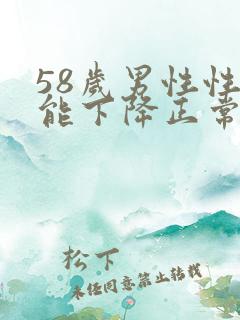 58歲男性性
能下降正常
松下
未经同意禁止转载